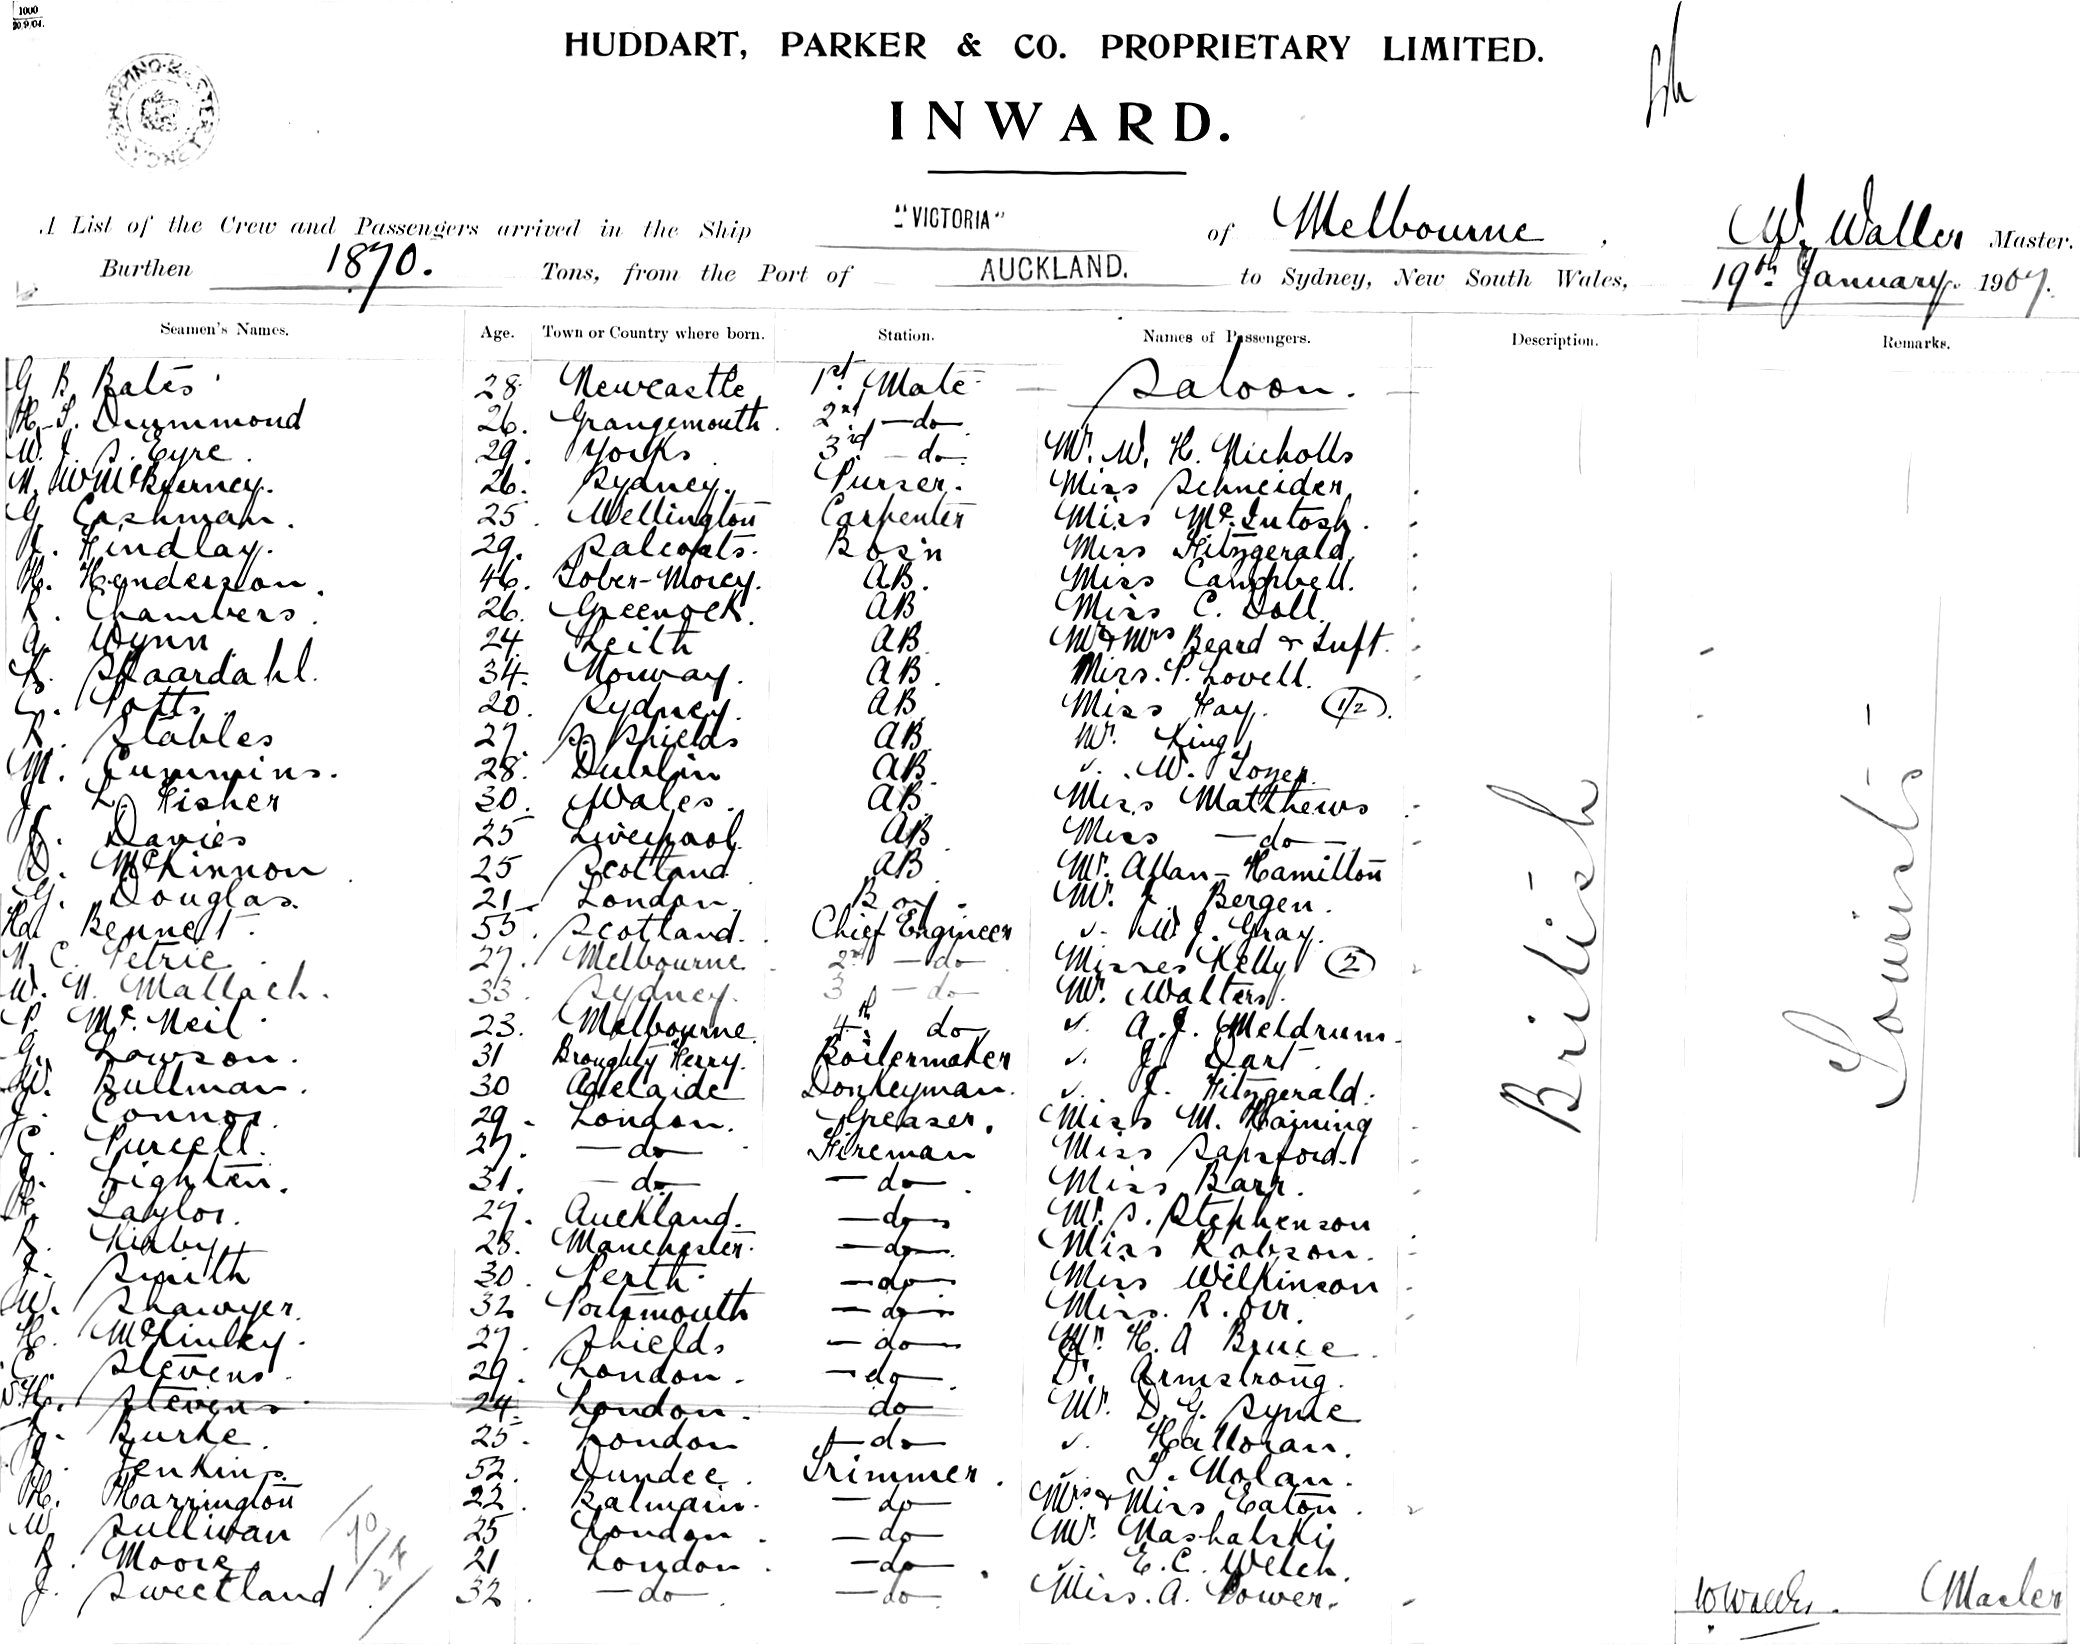 1000
20.9.04.
HUDDART, PARKER & CO. PROPRIETARY LIMITED.
INWARD.
A List of the Crew and Passengers arrived in the Ship "VICTORIA" of Melbourne, W. Waller Master.
Burthen 1870. Tons, from the Port of AUCKLAND. to Sydney, New South Wales, 19th January. 1907.
Seamen's Names. Age. Town or Country where born. Station. Names of Passengers. Description. Remarks.
G B Bates 28 Newcastle 1st Mate Saloon.
Drummond 26. Grangemouth. 2nd -do
W. J. S. Eyre. 29. Yorks 3rd -do. Mr. W. H. Nicholls
26. Sydney. Purser. Miss Schneider
G. Cashman. 25. Wellington Carpenter Miss McIntosh.
Findlay. 29. Salcoats. Bos'n Miss Fitzgerald
H. Henderson. 46. Tober-Morey. AB. Miss Campbell.
R. Chambers. 26. Greenock. AB Miss C. Doll.
G. Wynn 24. Leith AB Mr & Mrs Beard & Tuft.
Skaardahl. 34. Norway. AB. Miss. P. Lovell.
Potts. 20. Sydney. AB. Miss Hay. (1/2).
R. Stables 27. S. Shields AB Mr. King
M. Cummins. 28. Dublin AB W.
J. L. Fisher 30. Wales. AB Miss Matthews
Davies 25 Liverpool. AB Miss -do-
D. McKinnon 25 Scotland AB Mr. Allan-Hamilton
G. Douglas. 21. London. Boy. Mr. Bergen.
Bennett. 55. Scotland. Chief Engineer W J. Gray.
N. C. Petrie 27. Melbourne 2nd -do Misses Kelly (2)
W. N. Mallach. 33. Sydney. 3 -do Mr. Walters.
P. McNeil 23. Melbourne. 4th do A. J. Meldrum.
G. Lawson. 31 Broughty Ferry. Boilermaker J. Dart
W. Bullman. 30 Adelaide Donkeyman. J. Fitzgerald.
J. Connor. 29. London. Greaser. Miss M. Haining
C. Purcell. 27. -do Fireman Miss Sapsford.
J. Lighten. 31. -do -do. Miss Barr.
Taylor. 27. Auckland. -do Mr. S. Stephenson
R. Kirby 28. Manchester. -do Miss Robson.
J. Smith 30. Perth. -do Miss Wilkinson
W. Shawyer. 32 Portsmouth -do Miss. R. Orr.
H. McKinley. 27. Shields -do Mr. H. A Bruce
C. Stevens. 29. London. -do Dr. Armstrong.
Stevens 24. London. do Mr. D. G. Syme
J. Burke. 25. London -do Halloran.
Jenkins. 52. Dundee. Trimmer. T. Nolan.
H. Harrington 22. Balmain. -do Mrs & Miss Eaton
W Sullivan 25 London -do Mr. Nashalski
R. Moore 21 London. -do E. C. Welch.
J. Sweetland 32. -do -do Miss. A. Power.
British
Tourists
W Waller. Master